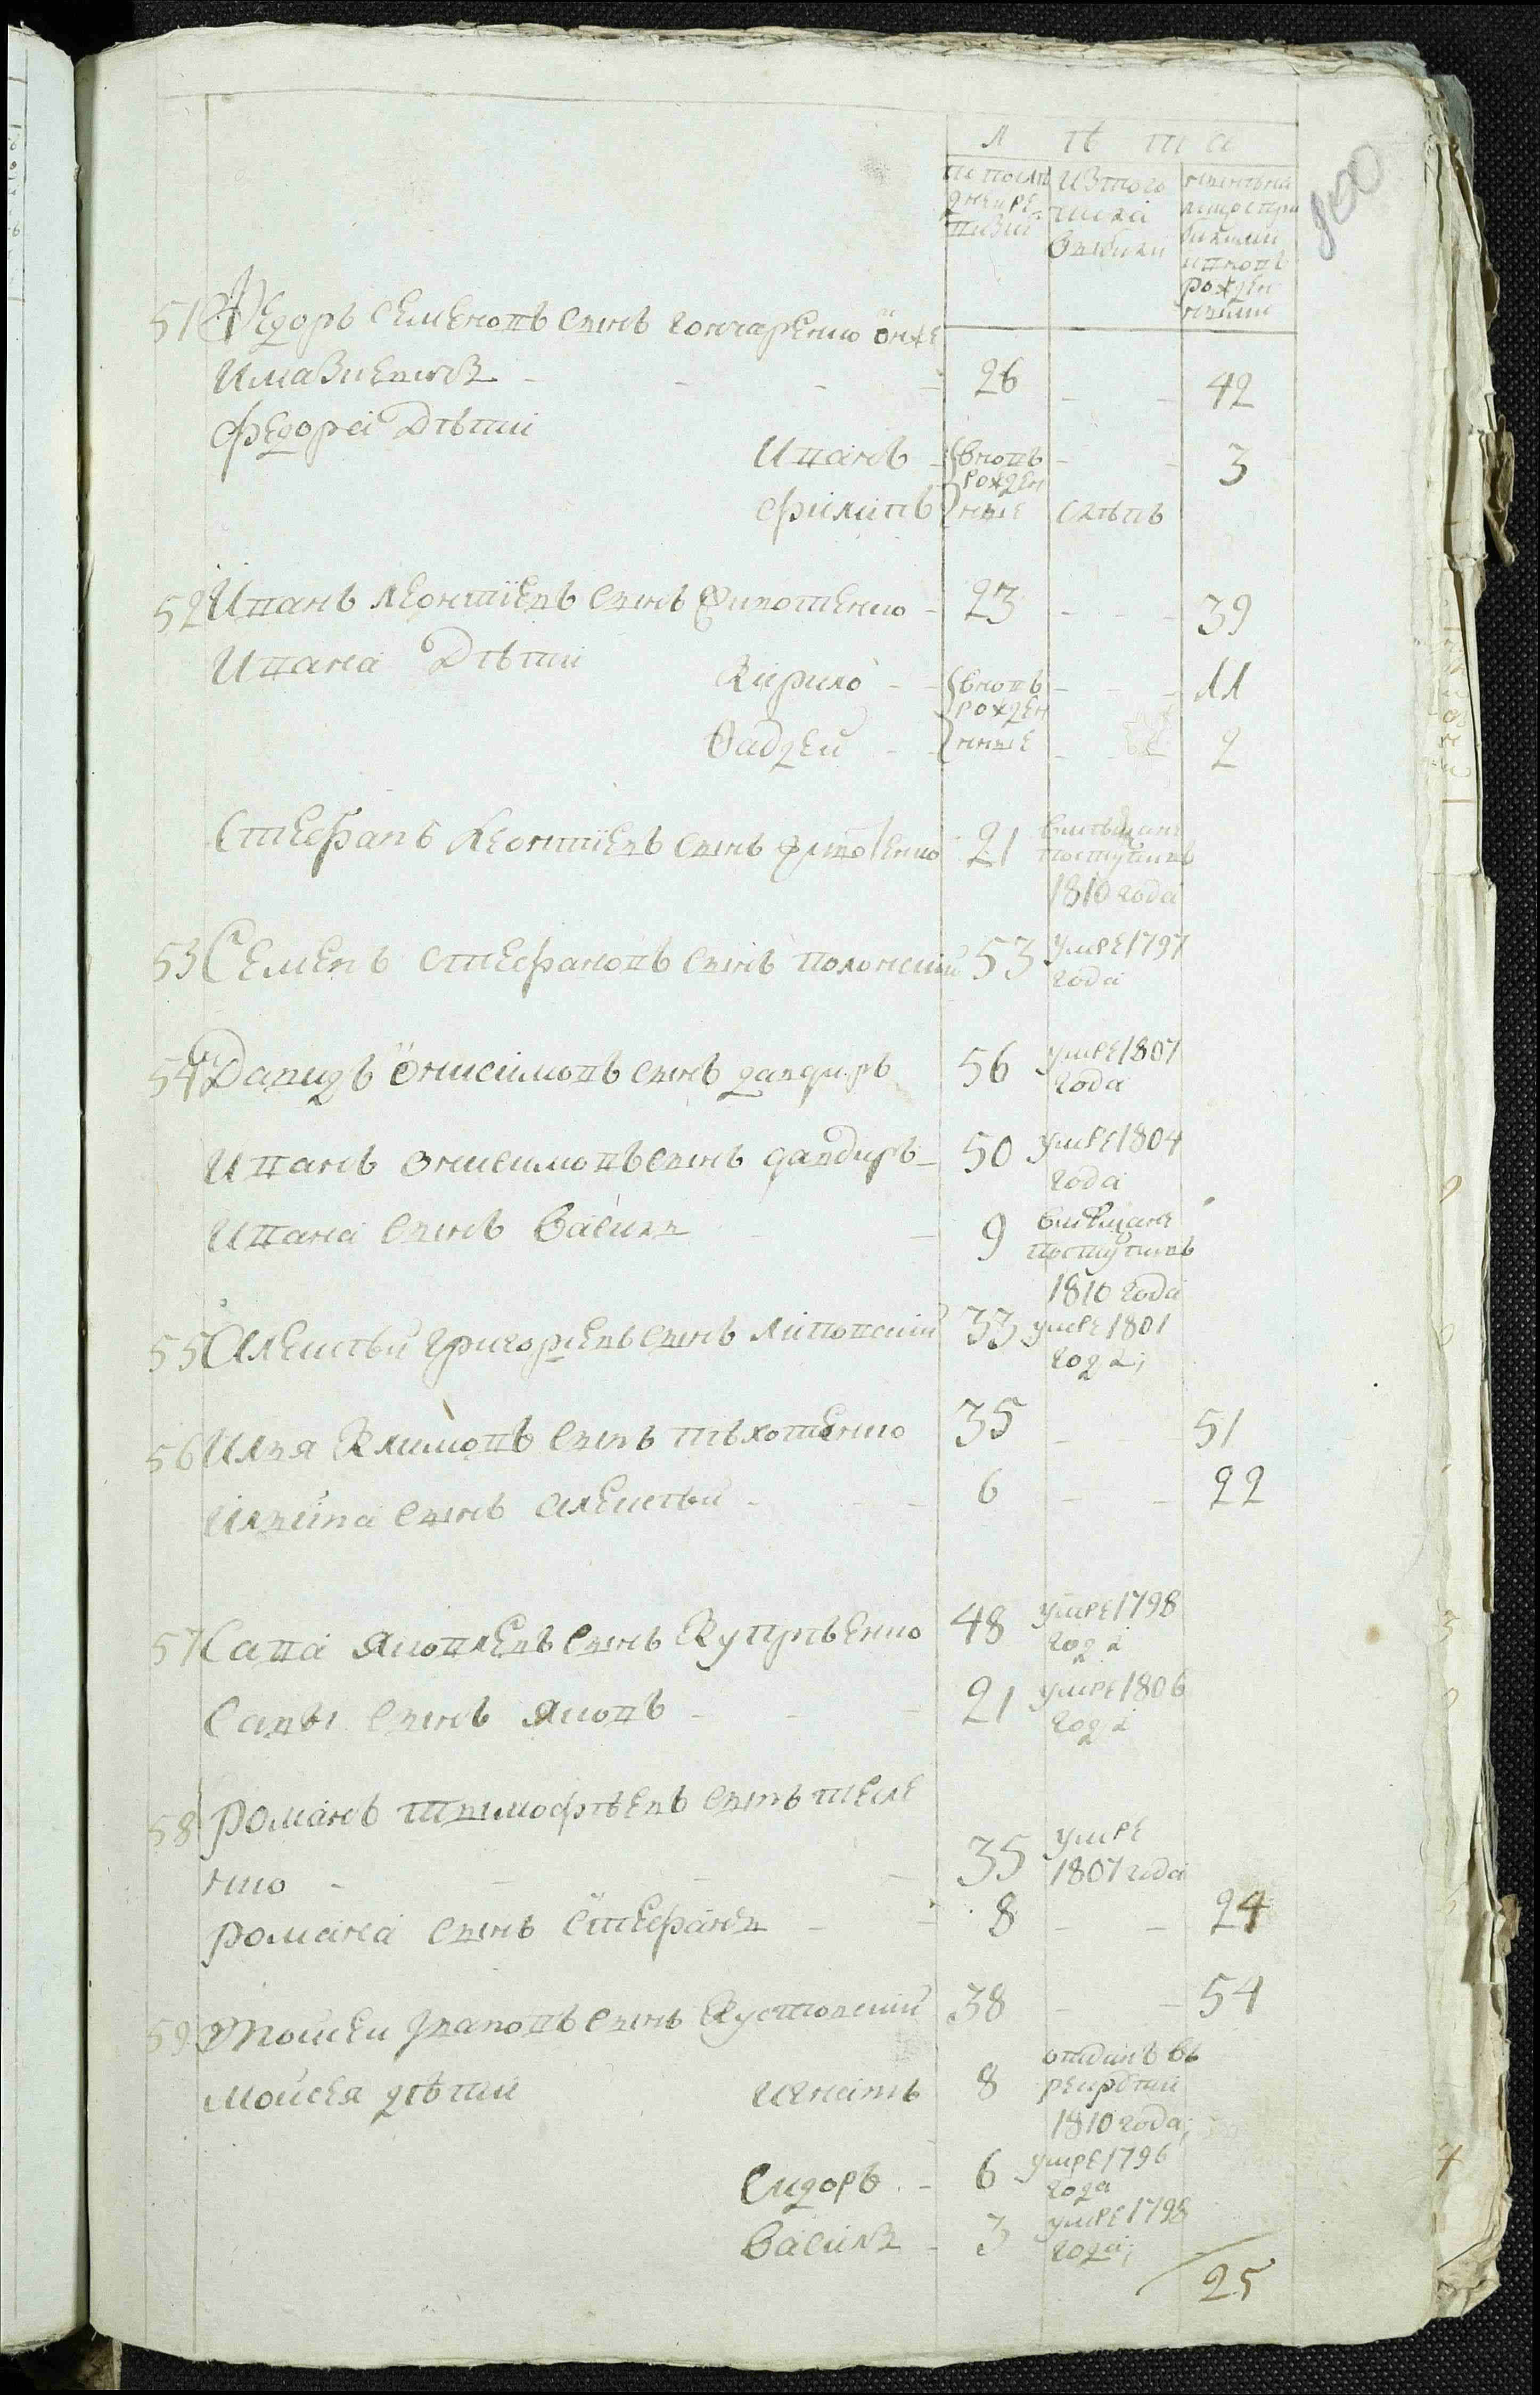 Л ѣ т а
по послѣ
дней ре
визіи
изтого
числа
выбили
нынѣ на
лицо спри
былыми
и вновь
рожден
ными
800
51 Федоръ Семеновъ сынъ Гончаренко онже
Имазнецькъ - - - 26 - - 42
Федора Дѣти
Иванъ - вновь - - 3
рожден
Филипъ ные слѣпъ
52 Иванъ Леонтіевъ сынъ - 23 - - - 39
Ивана Дѣти
Кирило - - вновь - - - 11
рожден
Фадей - - нные - - 2
Стефанъ Леонтіевъ сынъ 21 вмѣщане
поступилъ
1810 года
53 Семенъ Стефановъ сынъ Полонский 53 умре 1797
года
54 Давидъ Онисимовъ сынъ давдиръ 56 умре 1807
года
Иванъ Онисимовъ сынъ давдиръ - 50 умре 1804
года
Ивана сынъ Василь - 9 вмѣщане
поступилъ
1810 года
55 Алексѣй Григориевъ сынъ Липовский 33 умре 1801
года;
56 Илья Климовъ сынъ Пѣхотенко 35 - 51
Ильина сынъ Алексѣй - - - 6 - - 22
57 Сава Яковлевъ сынъ Купрѣенко 48 умре 1798
года
Савы сынъ Яковъ - - - 21 умре 1806
года
58 Романъ Тымофѣевъ сынъ Теле
нко - - - - 35 умре
1807 года
Романа сынъ Стефанъ - - 8 - - 24
59 Мойсей Ивановъ сынъ Кустовский 38 - - 54
Мойсея дѣти Игнатъ 8 отданъ въ
рекруты
1810 года;
Сидоръ - 6 умре 1796
года
Василь - 3 умре 1798
года;
25